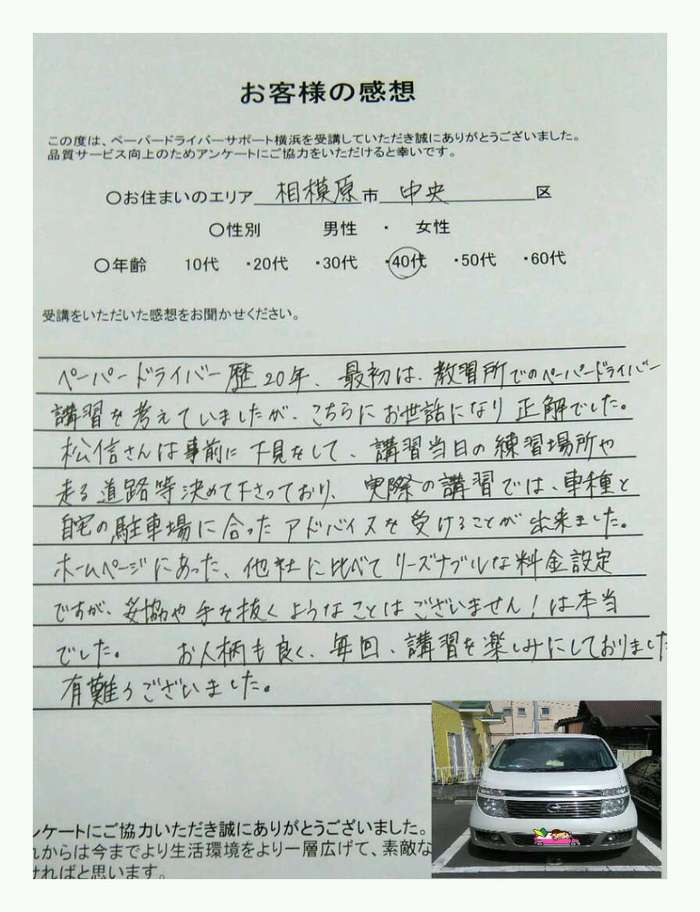 お客様の感想
この度は、ペーパードライバーサポート横浜を受講していただき誠にありがとうございました。
品質サービス向上のためアンケートにご協力をいただけると幸いです。
○お住まいのエリア 相模原 市 中央 区
○性別 男性 ・ 女性
○年齢 10代 ・20代 ・30代 ・40代 ・50代 ・60代
受講をいただいた感想をお聞かせください。
ペーパードライバー歴20年、最初は、教習所でのペーパードライバー
講習を考えていましたが、こちらにお世話になり正解でした。
松信さんは事前に下見をして、講習当日の練習場所や
走る道路等決めて下さっており、実際の講習では、車種と
自宅の駐車場に合ったアドバイスを受けることが出来ました。
ホームページにあった、他社に比べてリーズナブルな料金設定
ですが、妥協や手を抜くようなことはございません!は本当
でした。 お人柄も良く、毎回、講習を楽しみにしておりました
有難うございました。
ンケートにご協力いただき誠にありがとうございました。
れからは今までより生活環境をより一層広げて、素敵な
ければと思います。